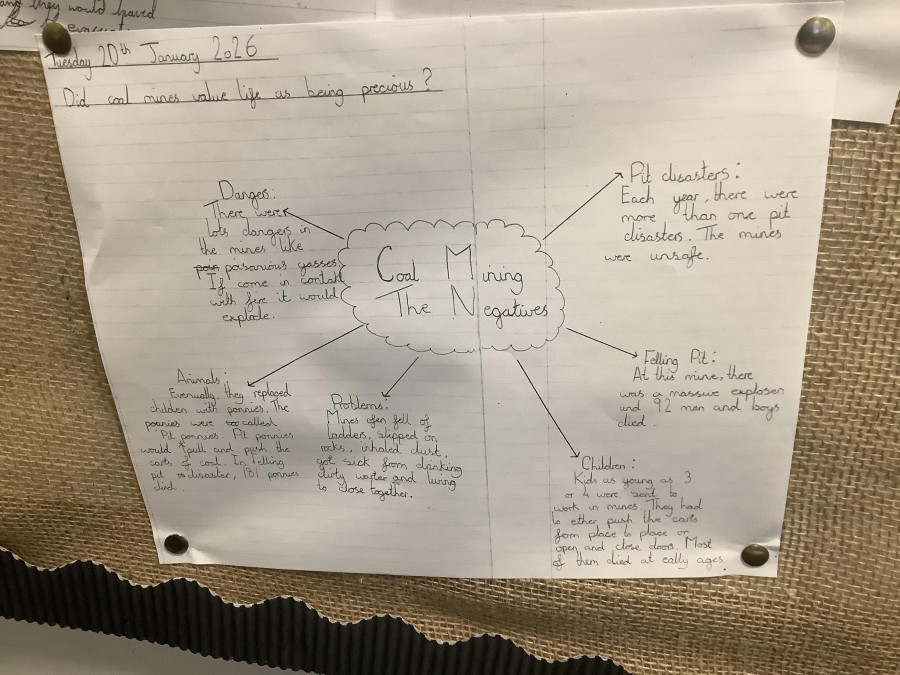 and they would paved
evacu
Tuesday 20th January 2026
Did coal mines value life as being precious?
Dangers:
There were
lots dangers in
the mines like
poisonious gasses.
If come in contact
with fire it would
explode.
Pit disasters:
Each year, there were
more than one pit
disasters. The mines
were unsafe.
Coal Mining
The Negatives
Felling Pit:
At this mine, there
was a massive explosen
and 92 men and boys
died.
Animals:
Evenually, they replaced
children with ponnies. The
poenies were so called
Pit ponnies. Pit ponnies
would pull and push the
carts of coal. In felling
pit disaster, 181 ponnies
died.
Problems:
Mines ofen fell of
ladders, slipped on
rocks, inhaled dust,
got sick from drinking
dirty warter and living
to close together.
Children:
Kids as young as 3
or 4 were sent to
work in mines. They had
to ether push the carts
from place to place or
open and close doors. Most
of them died at eally ages.